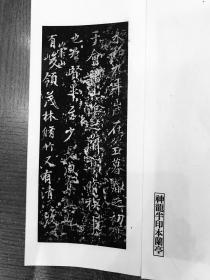 永和九年歲在癸丑暮春之初會
于會稽山陰之蘭亭脩稧事
也群賢畢至少長咸集此地
有崇山峻領茂林脩竹又有清流激
神龍半印本蘭亭